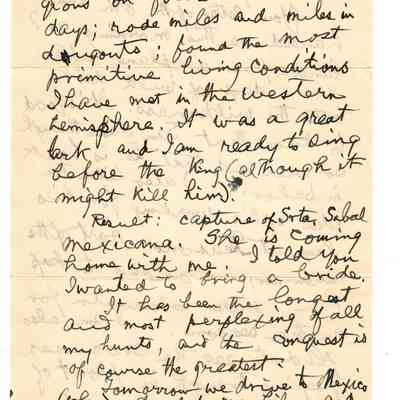 days; rode miles and miles in
dougouts; found the most
primitive living conditions
I have met in the western
hemisphere. It was a great
lark and I am ready to sing
before the King (although it
might kill him).
Result: capture of Srta. Sabal
mexicana. She is coming
home with me. I told you
I wanted to bring a bride.
It has been the longest
and most perplexing of all
my hunts, and the conquest is
of course the greatest.
Tomorrow we drive to Mexico